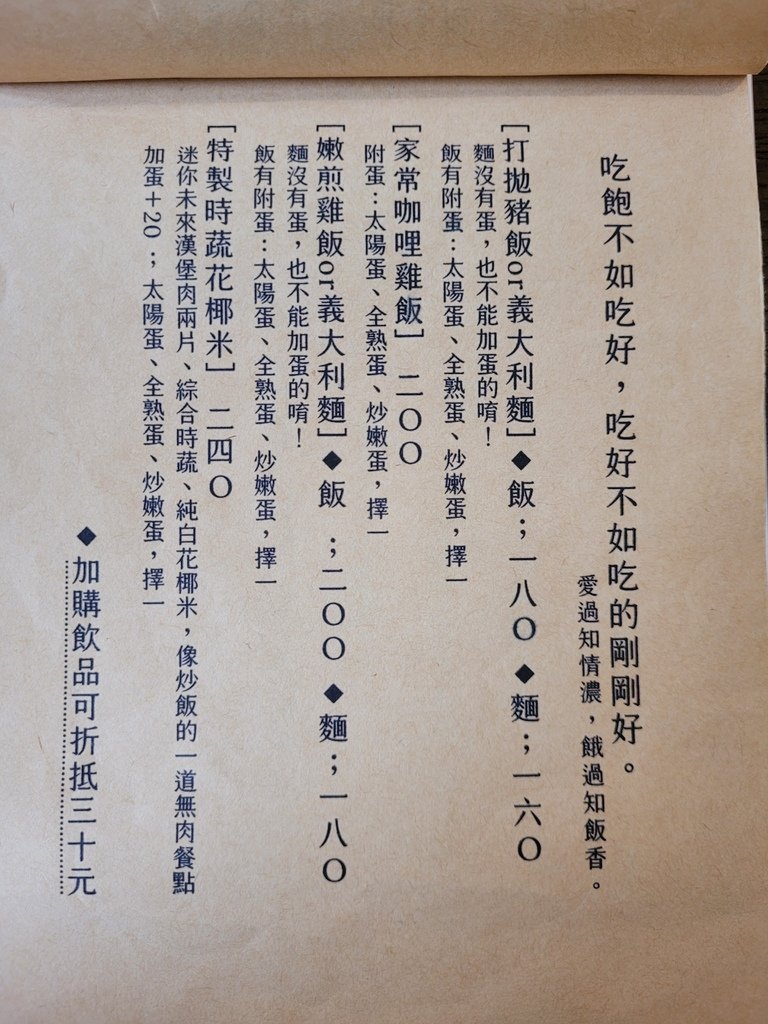 吃飽不如吃好，吃好不如吃的剛剛好。
愛過知情濃，餓過知飯香。
［打拋豬飯or義大利麵］◆飯；一八〇 ◆麵；一六〇
麵沒有蛋，也不能加蛋的唷！
飯有附蛋：太陽蛋、全熟蛋、炒嫩蛋，擇一
［家常咖哩雞飯］ 二〇〇
附蛋：太陽蛋、全熟蛋、炒嫩蛋，擇一
［嫩煎雞飯or義大利麵］◆飯 ；二〇〇 ◆麵；一八〇
麵沒有蛋，也不能加蛋的唷！
飯有附蛋：太陽蛋、全熟蛋、炒嫩蛋，擇一
［特製時蔬花椰米］ 二四〇
迷你未來漢堡肉兩片、綜合時蔬、純白花椰米，像炒飯的一道無肉餐點
加蛋＋20；太陽蛋、全熟蛋、炒嫩蛋，擇一
◆加購飲品可折抵三十元